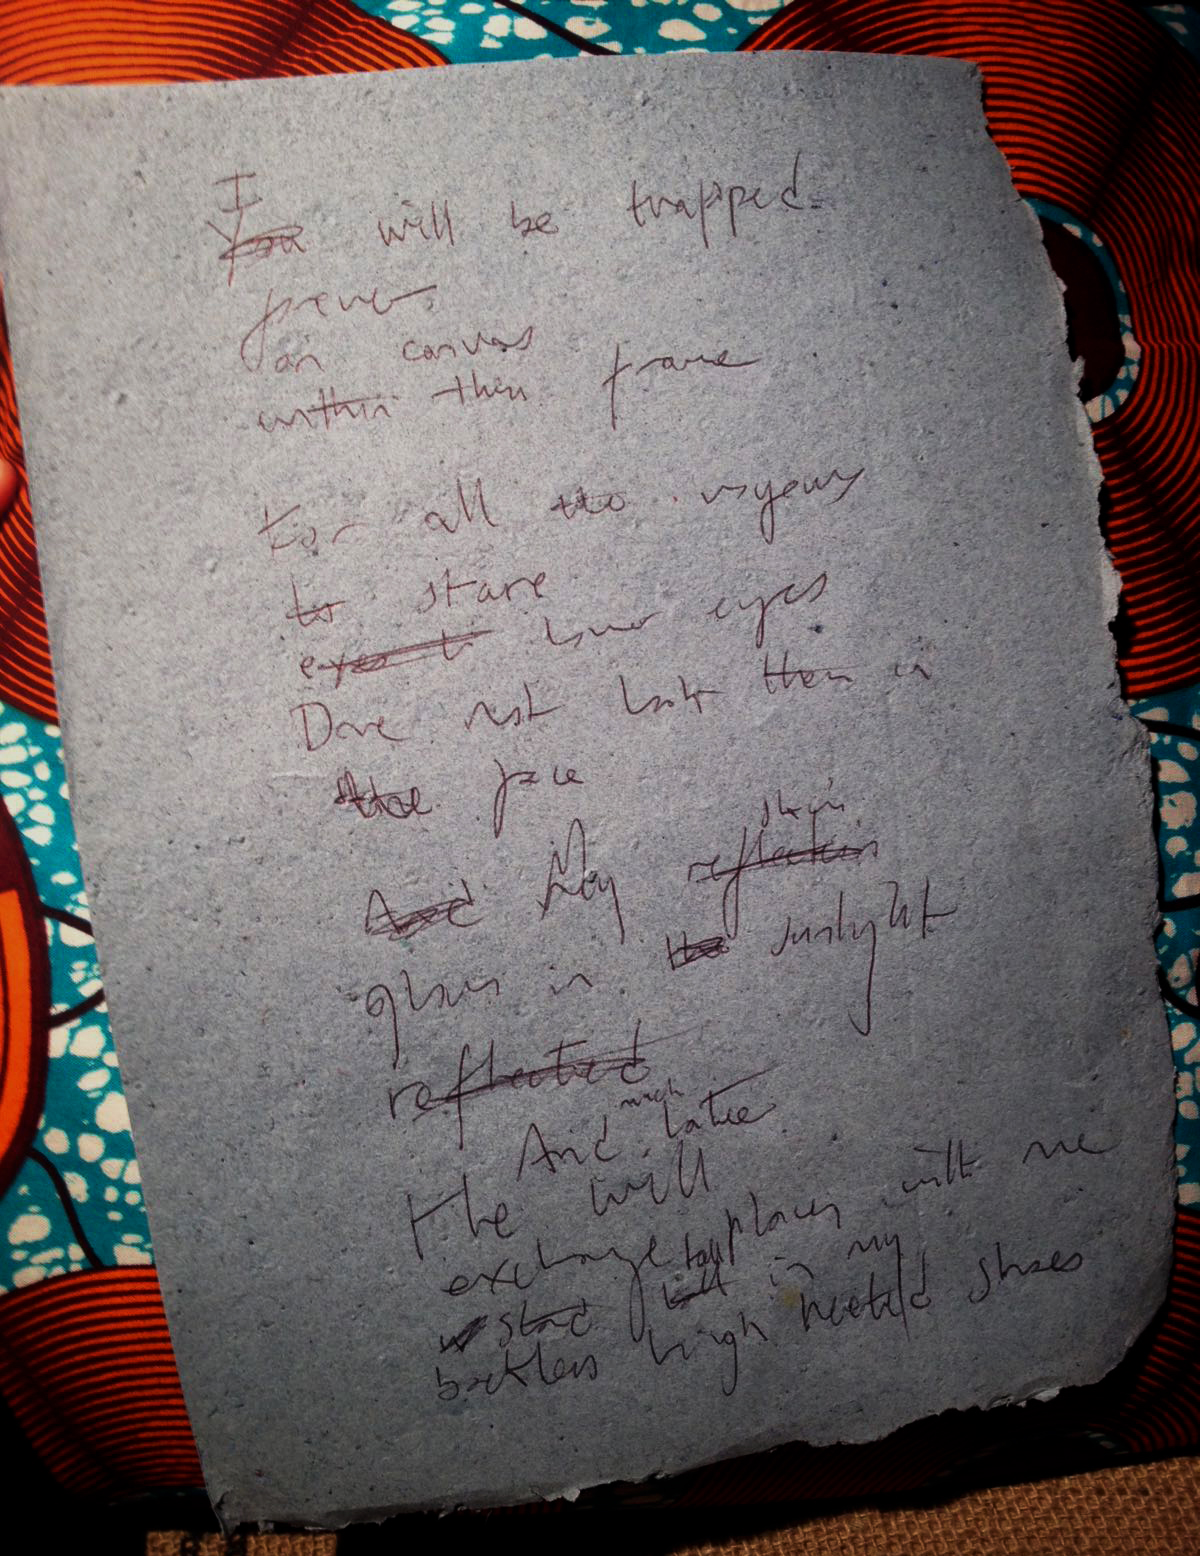 I
You will be trapped
forever
on canvas
within this frame
For all the voyeurs
to stare
lower eyes
Dare not look them in
the face
skin
And My reflection
glows in the sunlight
reflected
And
the will
exchange places with me
tall
stand in my
backless high heeled shoes